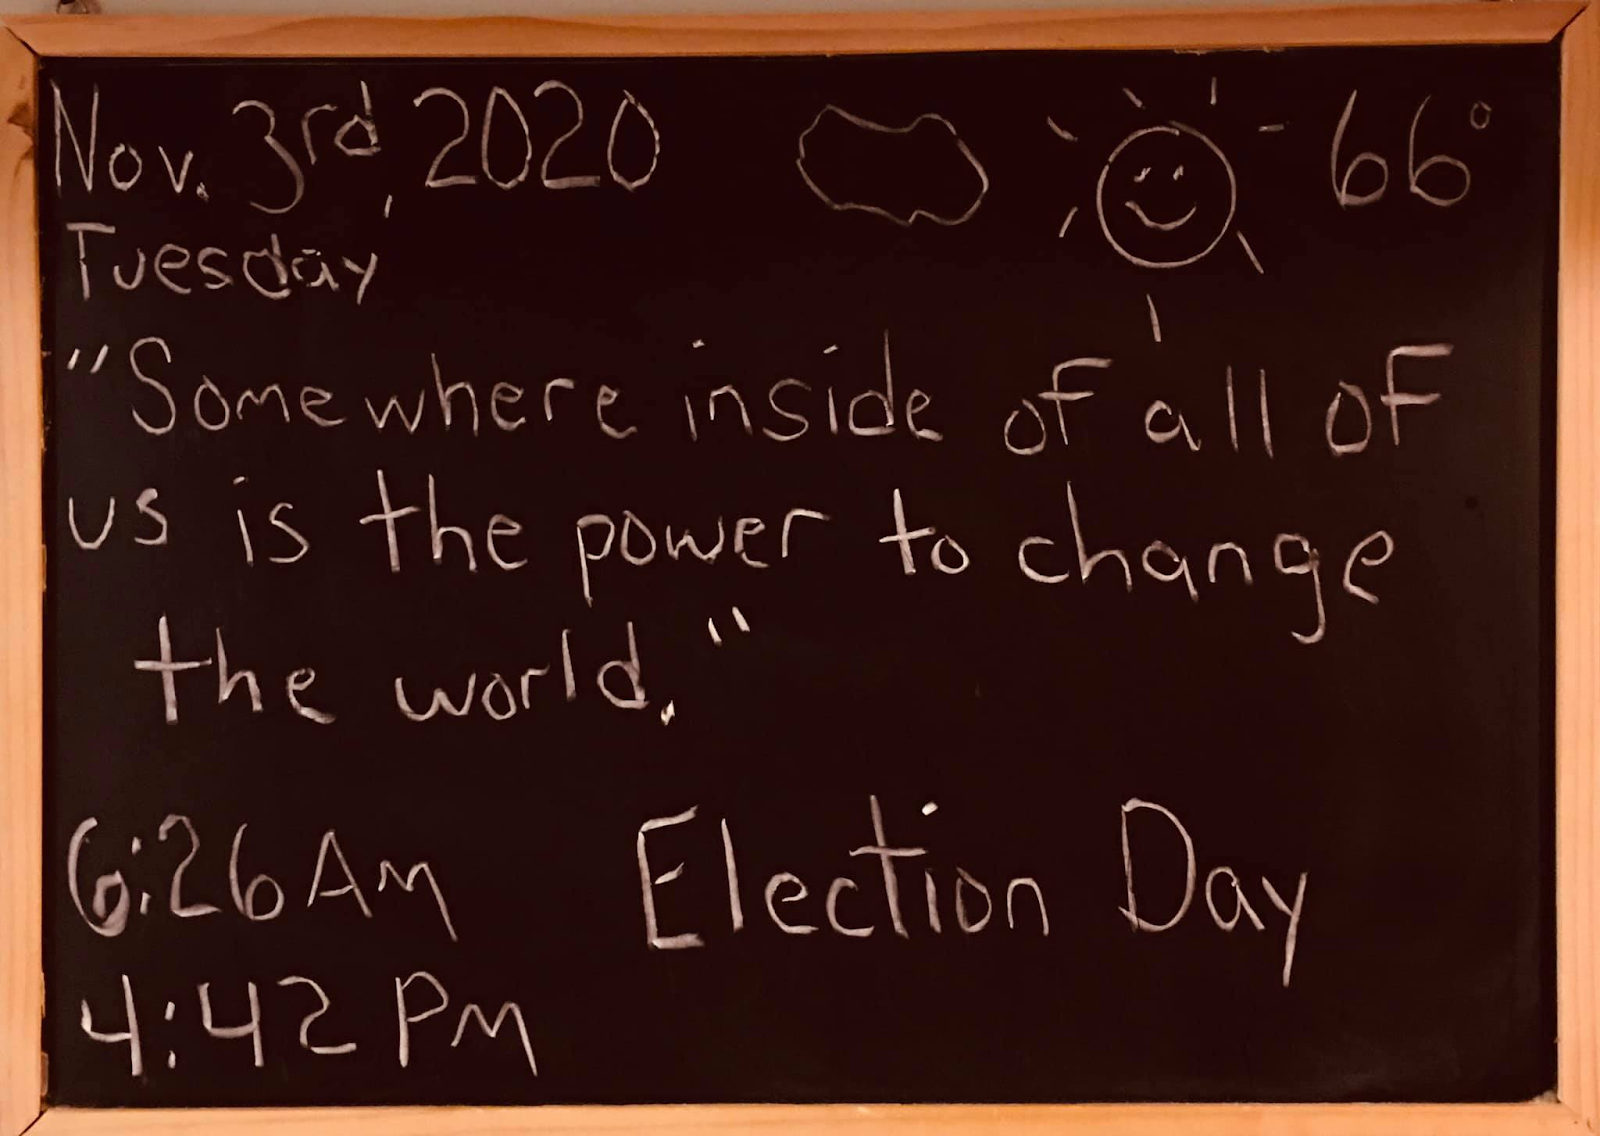 Nov. 3rd, 2020 66°
Tuesday
"Somewhere inside of all of
us is the power to change
the world."
6:26 AM Election Day
4:42 PM